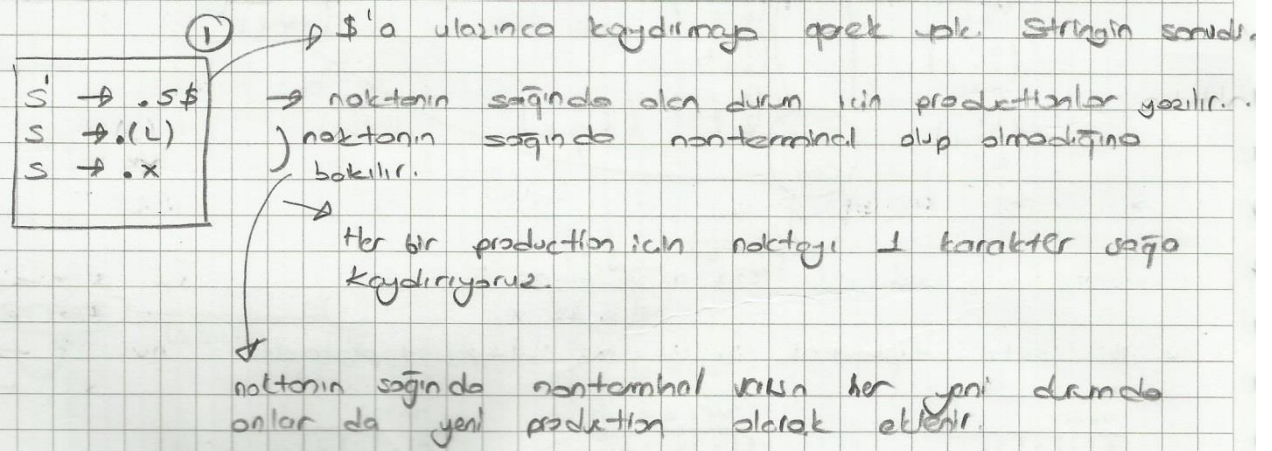 ① → $'a ulaşınca kaydırmaya gerek yok. Stringin sonudur.
S' → .S$
S → .(L)
S → .x
→ noktanın sağında olan durum için productionlar yazılır.
noktanın sağında nonterminal olup olmadığına
bakılır.
→ Her bir production için noktayı 1 karakter sağa
kaydırıyoruz.
noktanın sağında nonterminal varsa her yeni durumda
onlar da yeni production olarak eklenir.